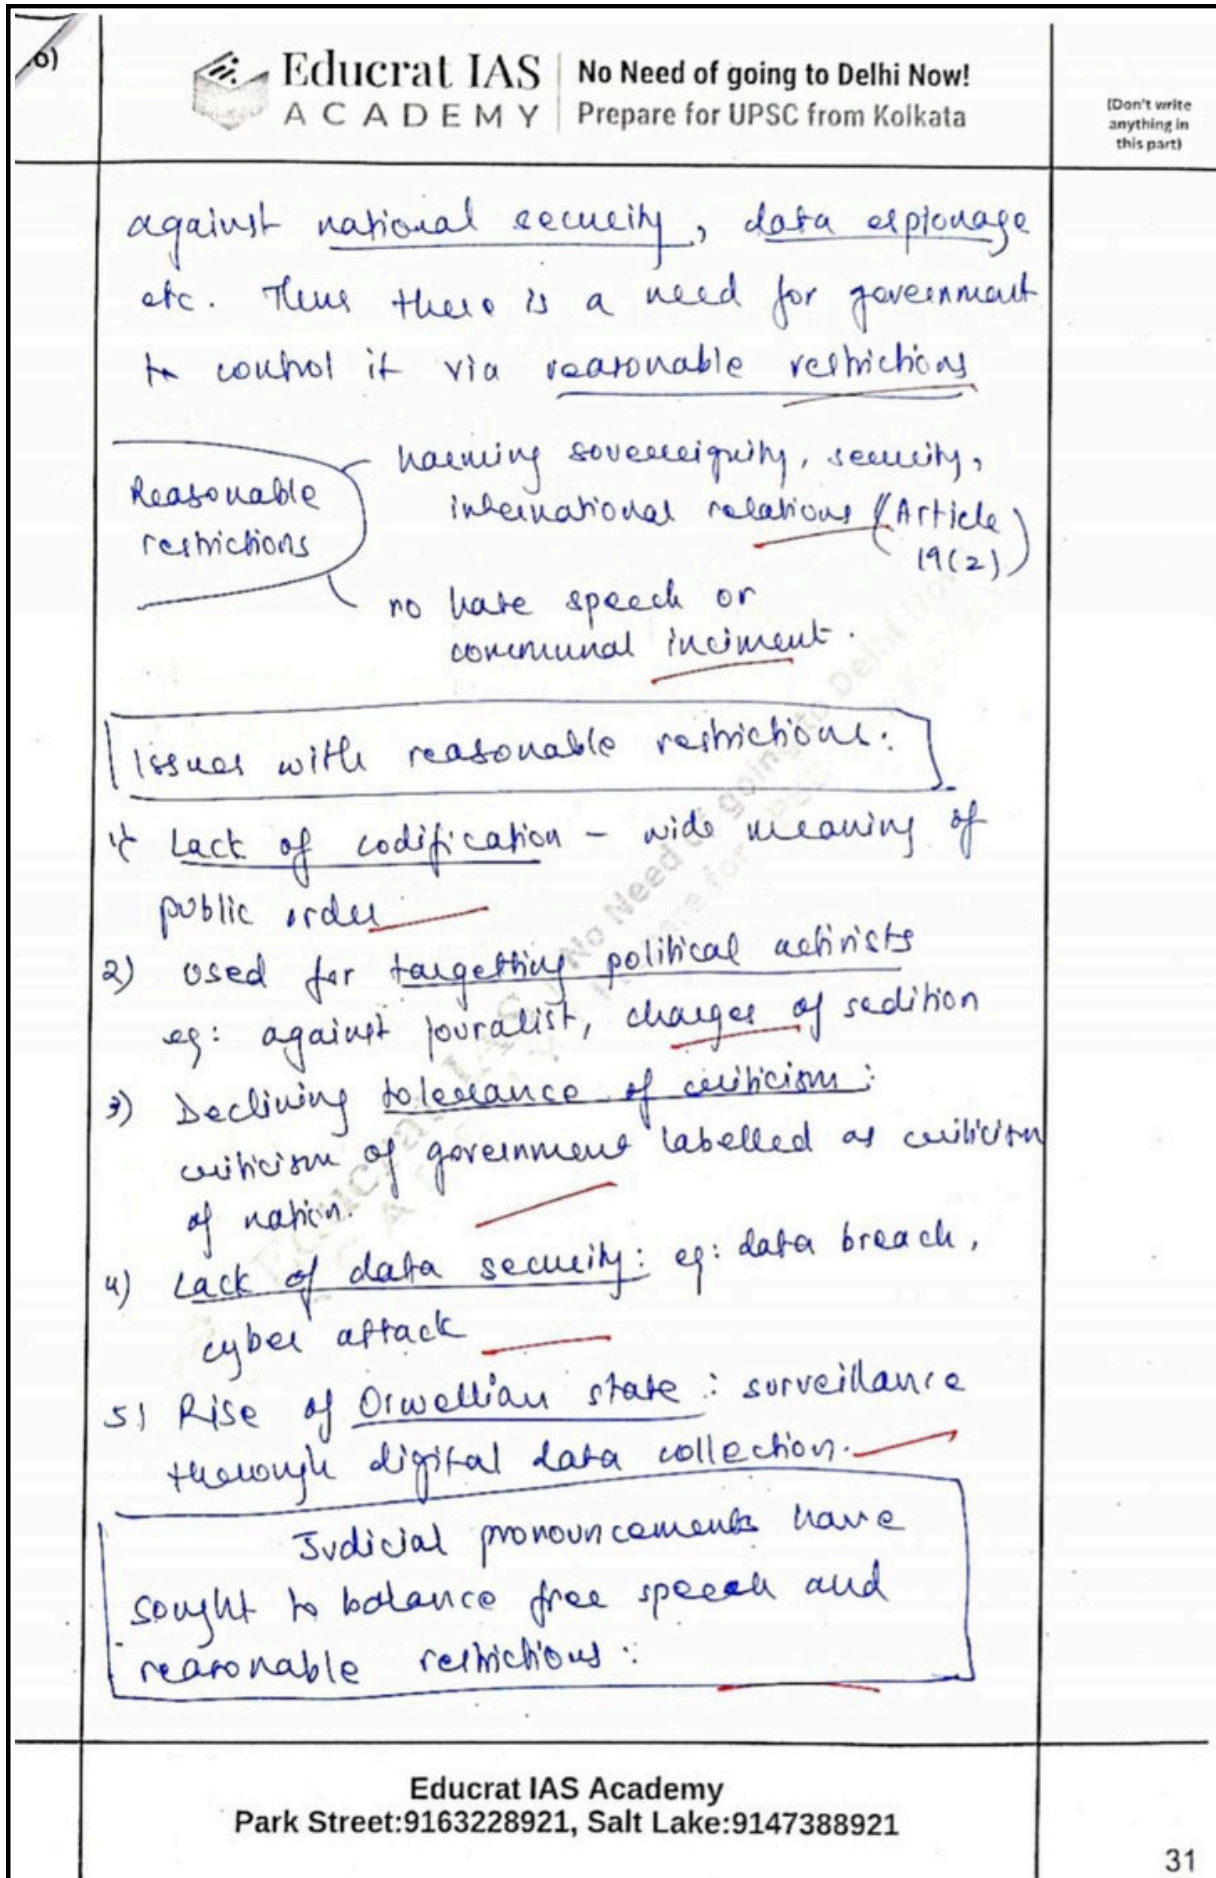 o)
Educrat IAS
ACADEMY
No Need of going to Delhi Now!
Prepare for UPSC from Kolkata
(Don't write
anything in
this part)
against national security, data espionage
etc. Thus there is a need for government
to control it via reasonable restrictions
Reasonable
restrictions
harming sovereignity, security,
international relations (Article
19(2))
no hate speech or
communal inciment.
Issues with reasonable restrictions:
1) Lack of codification - wide meaning of
public order
2) Used for targetting political activists
eg: against jouralist, charges of sedition
3) Declining tolerance of criticism:
criticism of government labelled as criticism
of nation.
4) Lack of data security: eg: data breach,
cyber attack
5) Rise of Orwellian state: surveillance
thorough digital data collection.
Judicial pronouncements have
sought to balance free speech and
reasonable restrictions:
Educrat IAS Academy
Park Street:9163228921, Salt Lake:9147388921
31